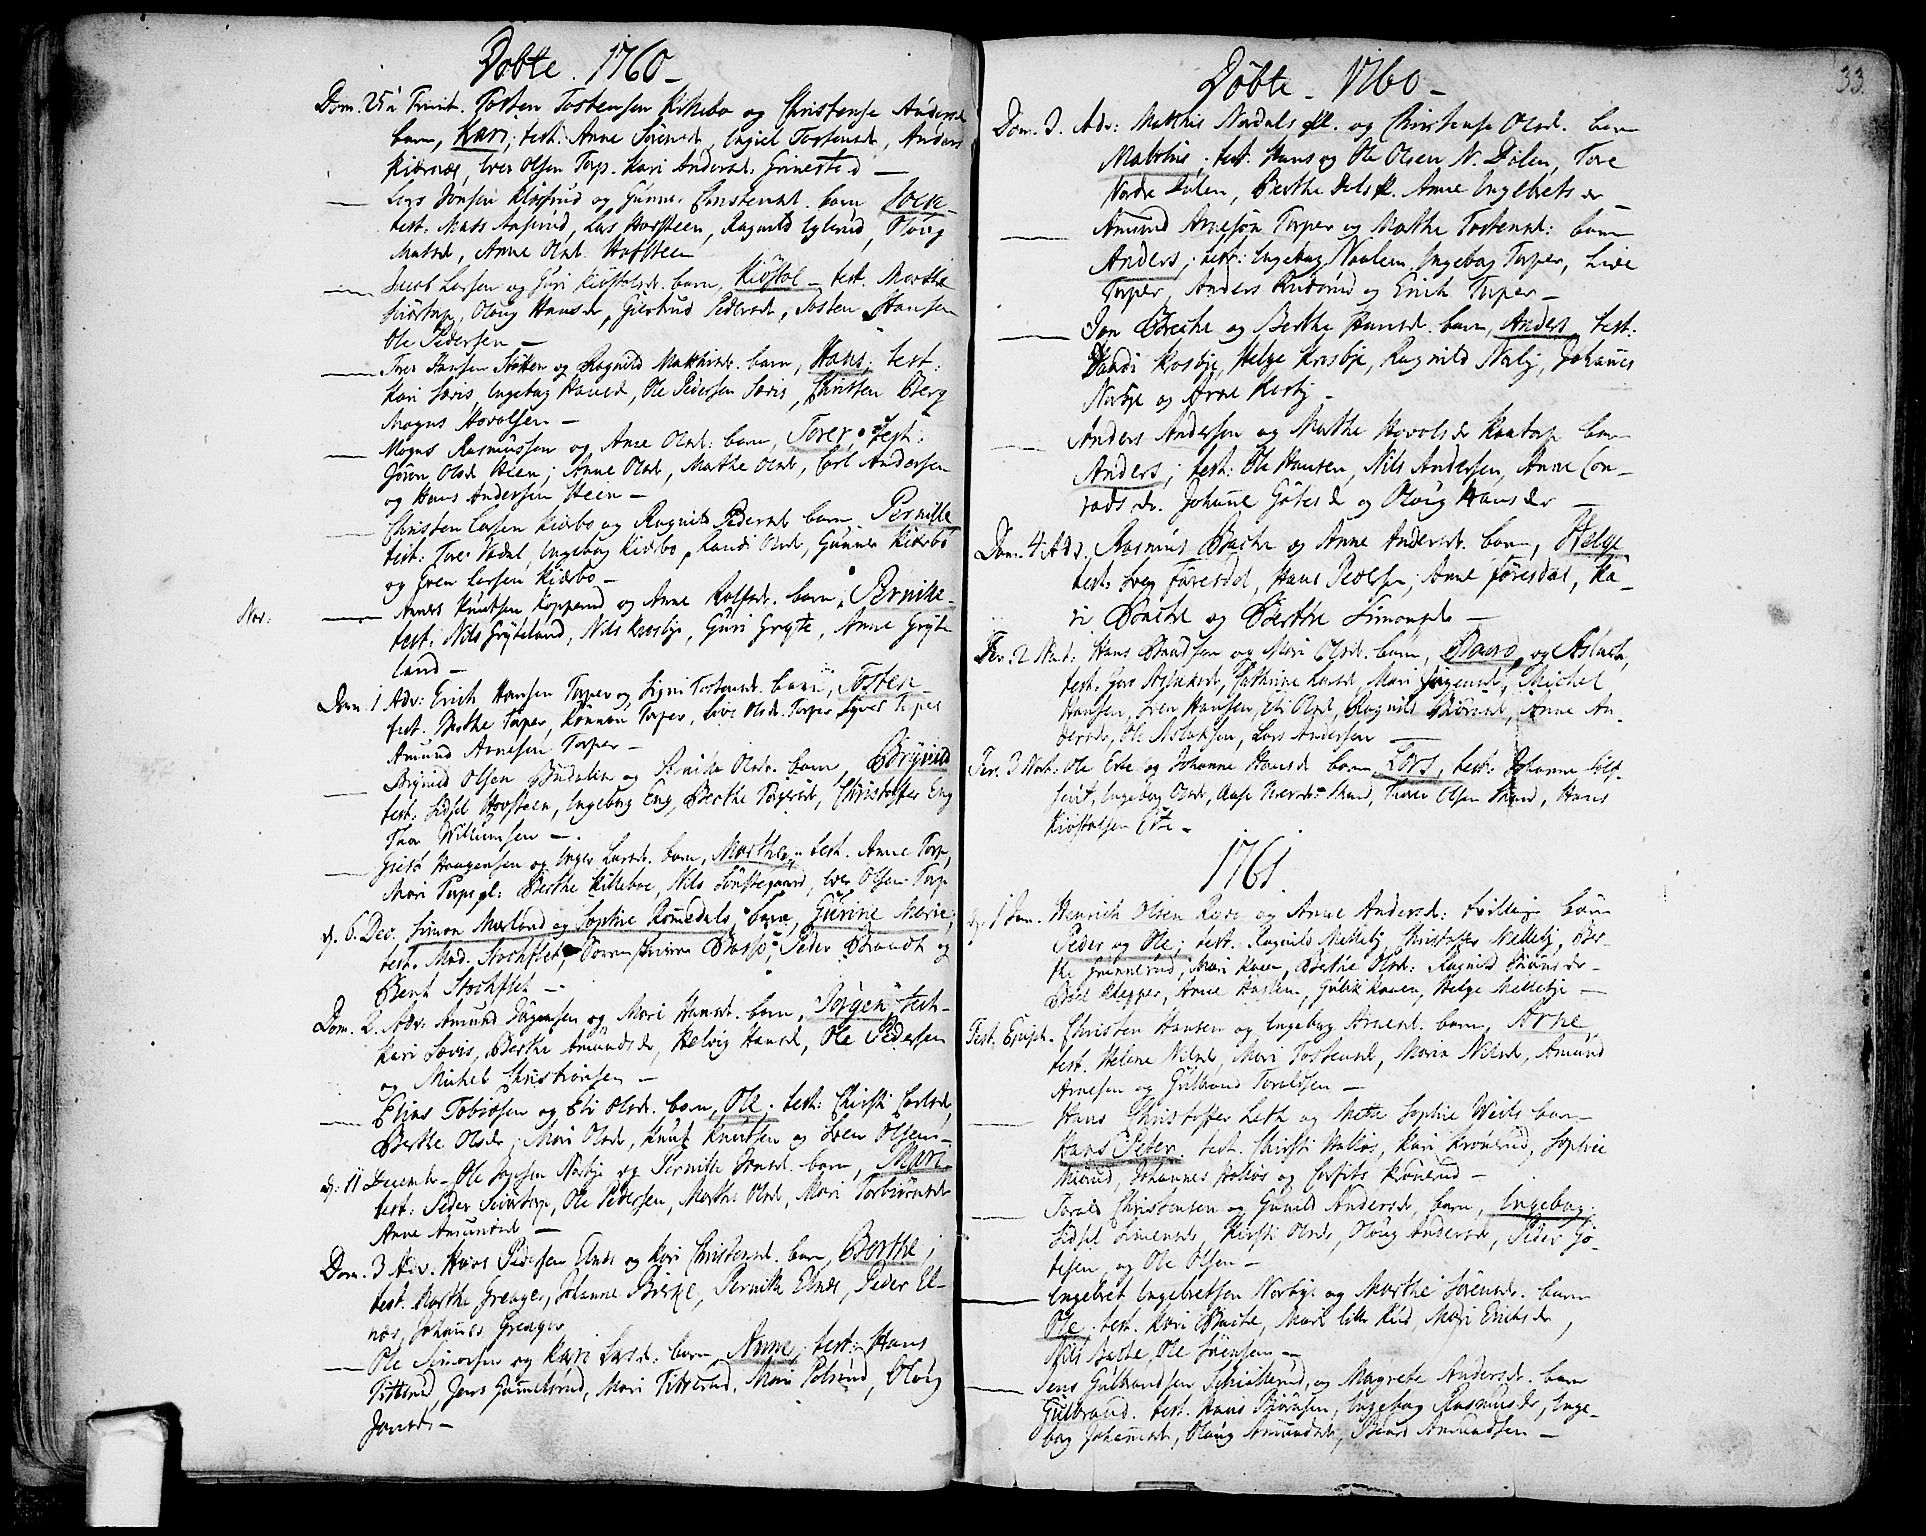 Døbte. 1760 –
Dom. 25 a Trinit. Tosten Tostensen Killebo og Christense Andersd
barn, Kari; test. Anne Svensd, Engiel Tostensd, Anders
Kiærnæs, Iver Olsen Torp. Kari Andersd. Grimestad —
Lars Jonsen og Gunner Christensd. barn
test. Mads Aasrud, Lars Hovsteen, Ragnild Uglerud, Oloug
Matsd, Anne Olsd. Hafsteen
Jacob Larsen og Guri Kiøstelsd. barn, Kiøstol – test. Marthe
Oloug Hansd, Giertrud Pedersd, Tosten Hansen
Ole Pedersen —
Iver Hansen og Ragnild Matthisd. barn, Hans; test:
Kari Sævis, Ingebag, Ole Pedersen Sævis, Christen Berg
Magus Hovolsen —
Mogns Rasmussen og Anne Olsd: barn, Torer, test:
Jøran Olsd. Steen; Anne Olsd, Mathe Olsd, Carl Andersen
og Hans Andersen Steen —
Christen Larsen Kiærbo og Ragnild Pedersd barn, Pernille
test: Iver, Ingebag Kiærbo, Randi Olsd, Gunner Kiærbo
og Even Larsen Kiærbo —
Nov:
Anders Knutsen Kopperud og Anne Rolfsdr. barn, Pernille –
test: Nils Grøteland, Nils Krosbye, Guri Grøte, Anne Grøte
land —
Dom. 1 Adv: Erich Hansen Torper og Signi Tostensd. barn, Tosten
test. Berthe Torper, Rønnov Torper, Live Olsd. Torper, Torper
Amund Arnesen Torper —
Brynild Olsen Budalen og Pernille Olsdr. barn, Brynild
test: Sidsel Hovsteen, Ingeborg Eng, Berthe, Christoffer Eng
Willumsen —
Haagensen og Inger Larsdr. barn, Marthe; test. Anne Torp,
Mari Torpegl: Berthe Killeboe, Nils Tønsgaard, Iver Olsen Torp
d. 6. Dec. Simon Morland og Sophie Romedals barn, Gurine Marie;
test. Mad. Stochflet, Basse, Peder Brandt og
Bent Stochflet —
Dom. 2. Adv: Amund Jørgensen og Mari Hansd. barn, Jørgen; test.
Kari Sævis, Berthe Amundsdr, Helvig Hansd, Ole Pedersen
og Michel Christiansen —
Elias Tobiæsen og Eli Olsdr. barn, Ole; test: Chirsti Carlsdr,
Berthe Olsdr, Mari Olsdr, Knut Knutsen og Sven Olsen –
d: 11 December – Ole Norbye og Pernille Jonsd. barn, Mari
test: Peder, Ole Pedersen, Marthe Olsd, Mari Torbiørnsdr
Anne Amundsd —
Dom. 3 Adv. Hans Pedersen Elnæs og Kari Christensd. barn, Berthe;
test. Marthe Greager, Johanne Biske, Pernille Elnæs, Peder El-
næs, Johanes Greager
Ole Simonsen og Kari Larsd: barn Anne, test: Hans
Titterud, Jens Gummelsrud, Mari Titterud, Mari Polsrud, Oloug
Jonsdr. —
33
Døbte – 1760 –
Dom. 3. Adv: Matthis Nordals pl. og Christense Olsd. barn
Mathis; test. Hans og Ole Olsen N. Dølen, Tore
Nordre Dølen, Berthe Dals pl. Anne Ingebretsdr —
Amund Arneson Torper og Mathe Tostensd: barn
Anders; test: Ingebag Naalem, Ingebag Torper, Live
Torper, Anders Rudsrud og Erich Torper —
Jon Bache og Berthe Hansd. barn, Anders test:
Randi Krosbye, Helge Krosbye, Ragnild Norby, Johannes
Norbye og Arne Kosby —
Anders Andersen og Mathe Hovolsdr Kaatorp barn
Anders; test: Ole Hansen, Nils Andersen, Anne Con-
radsdr. Johanne Gøtesdr og Oloug Hansdr —
Dom. 4 Adv. Rasmus Bache og Anne Andersd. barn, Helge
test: Svey Furesdal, Hans Pedersen, Anne Furesdal, Ka-
ri Bache og Berthe Simonsdr —
Fer. 2 Nat: Hans Baardsen og Mari Olsd. barn, Baard og Aslach,
test. Aslaksd, Cathrine Larsd, Mari Jørgensd, Michel
Hansen, Sven Hansen, Eli Olsd, Ragnild, Anne An-
dersdr, Ole Aslaksen, Lars Andersen —
Fer. 3 Nat: Ole Este og Johanne Hansd barn, Lars, test: Johanne
Ingebag Olsd, Aase Iversd, Iver Olsen, Hans
Kiøstolsen Este —
1761.
d. 1 Jan. Henrich Olsen og Anne Andersd: tvilling børn
Peder og Ole; test. Ragnild Melleby, Christoffer Melleby, Ber-
the Grønnerud, Mari Kaven, Berthe Olsd: Ragnild
Klopper, Anne Haslem, Gulik Kaven, Helge Mellebye —
Fest. Epiph. Christen Hansen og Ingebag Arnesd. barn, Arne
test. Helene Nilsd, Mari Tostensd, Maria Nilsd, Amund
Arnesen og Gulbrand Toraldsen —
Hans Christoffer Leth og Mette Sophie Weils barn –
Hans Peter. test. Chirsti Valløs, Kari Krønerud, Sophie
Johannes Valløs og Krønerud —
Torald Christensen og Gunild Andersd, barn, Ingebag.
Sidsel Simensd, Kirsti Olsd, Oloug Andersd, Peder Gø-
tesen og Ole Olsen —
Engebret Engebretsen Norbye og Marthe Sørensd. barn
Ole. test. Kari Bache, Mari lille Rud, Mari Erichsdr,
Nils Bache, Ole Sørensen —
Jens Gulbrandsen og Magrete Andersd. barn
Gulbrand. test. Hans Biørnsen, Ingebag Rasmusdr, Inge-
bag Johannesd, Oloug Amundsd, Baard Amundsen —